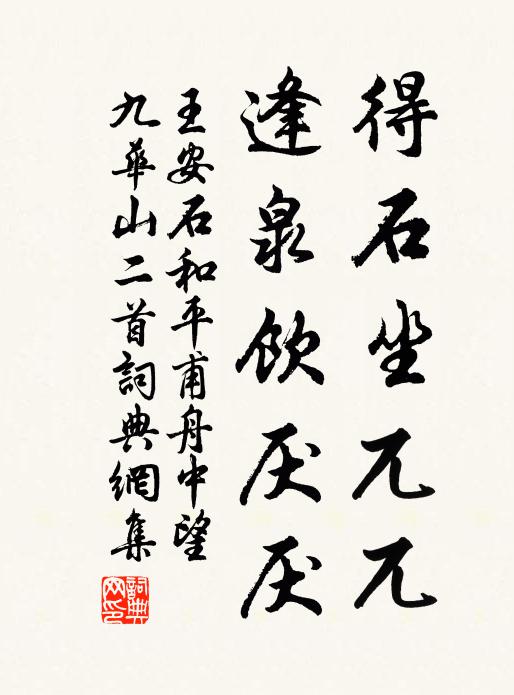 得石坐兀兀
逢泉飲厌厌
王安石和平甫舟中望
九華山二首詞典網集
詞典网印